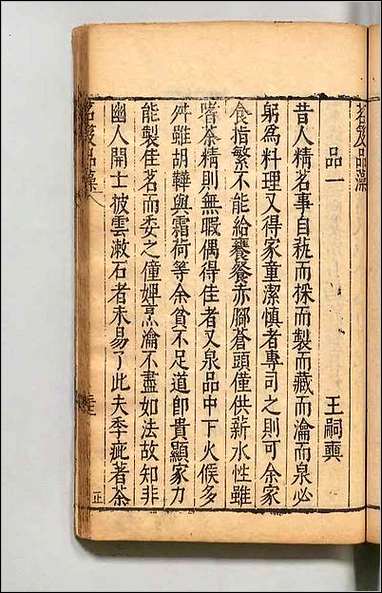 茗笈品藻
品一
王嗣奭
昔人精茗事自秇而採而製而藏而瀹而泉必
躬為料理又得家童潔慎者專司之則可余家
食指繁不能給饔餐赤腳蒼頭僅供薪水性雖
嗜茶精則無暇偶得佳者又泉品中下火候多
舛雖胡鞾與霜荷等余貧不足道即貴顯家力
能製佳茗而委之僮婢烹瀹不盡如法故知非
幽人開士披雲漱石者未易了此夫季疵著茶
茗笈品藻